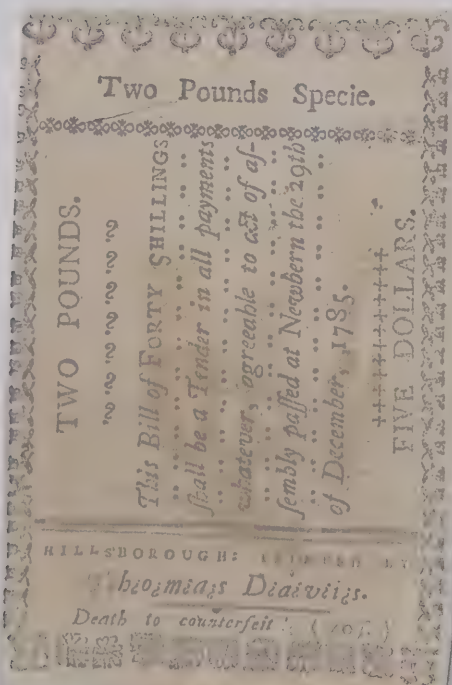 Two Pounds Specie.
TWO POUNDS.
This Bill of FORTY SHILLINGS
ſhall be a Tender in all payments
whatever, agreeable to act of aſ-
ſembly paſſed at Newbern the 29th
of December, 1785.
FIVE DOLLARS.
HILLSBOROUGH: PRINTED BY
Death to counterfeit